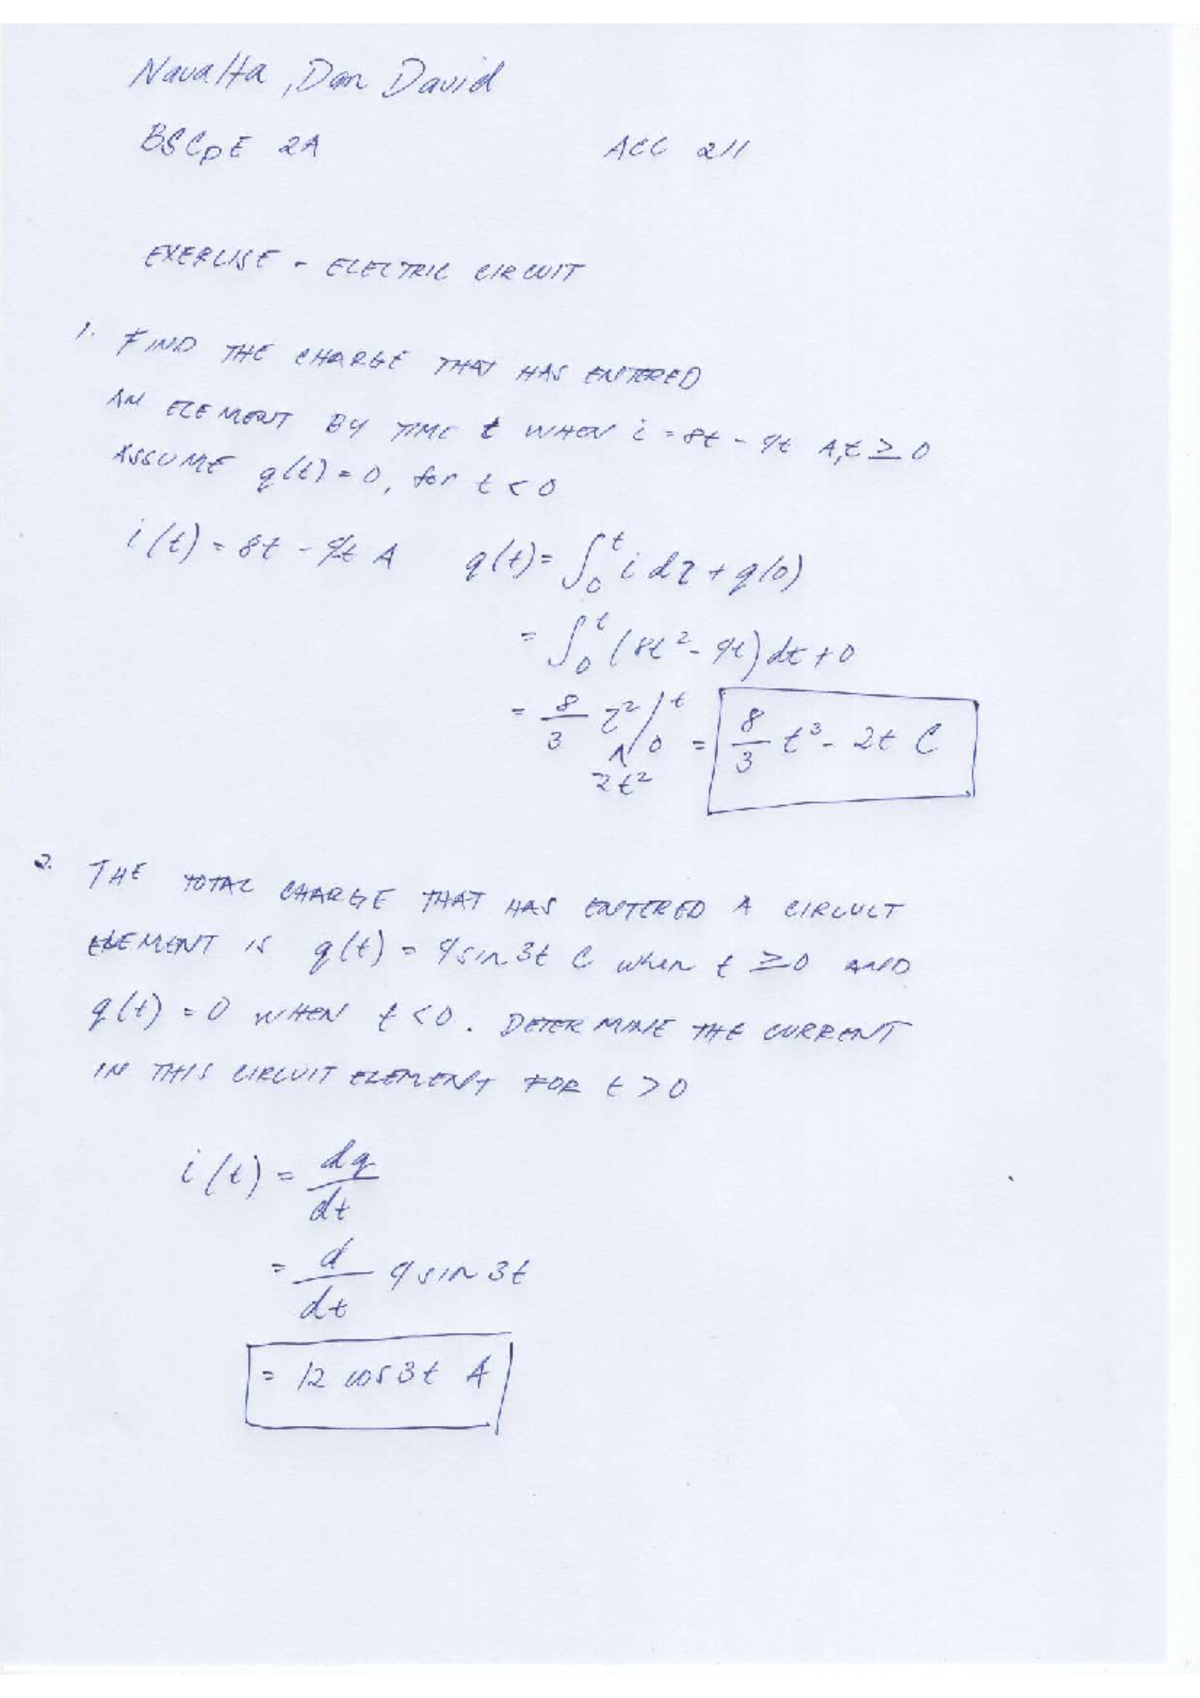 Navalta, Dan David
BSCpE 2A ACC 211
EXERCISE - ELECTRIC CIRCUIT
1. FIND THE CHARGE THAT HAS ENTERED
AN ELEMENT BY TIME t WHEN i = 8t - 4t A, t ≥ 0
ASSUME q(t) = 0, for t < 0
i(t) = 8t - 4t A q(t) = ∫₀ᵗ i dτ + q(0)
= ∫₀ᵗ (8t² - 4t) dt + 0
= 8/3 τ² /₀ᵗ = 8/3 t³ - 2t C
^
2t²
2. THE TOTAL CHARGE THAT HAS ENTERED A CIRCUIT
ELEMENT IS q(t) = 4 sin 3t C when t ≥ 0 AND
q(t) = 0 WHEN t < 0. DETERMINE THE CURRENT
IN THIS CIRCUIT ELEMENT FOR t > 0
i(t) = dq/dt
= d/dt 4 sin 3t
= 12 cos 3t A